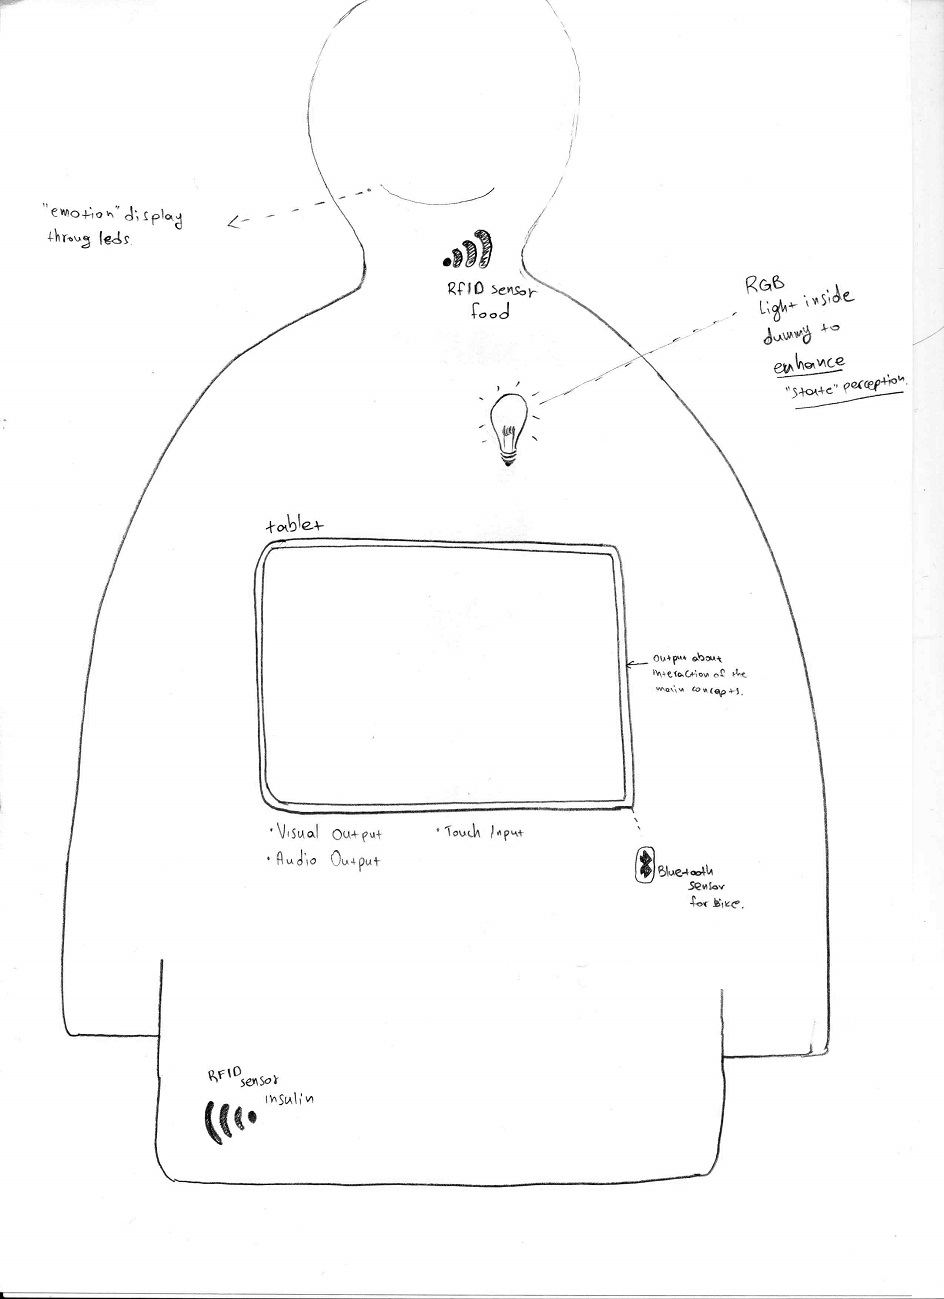 "emotion" display
throug leds.
RFID sensor
food
RGB
Light inside
dummy to
enhance
"state" perception.
tablet
Output about
interaction of the
main concepts.
· Visual Output
· Touch Input
· Audio Output
Bluetooth
sensor
for Bike.
RFID
sensor
insulin